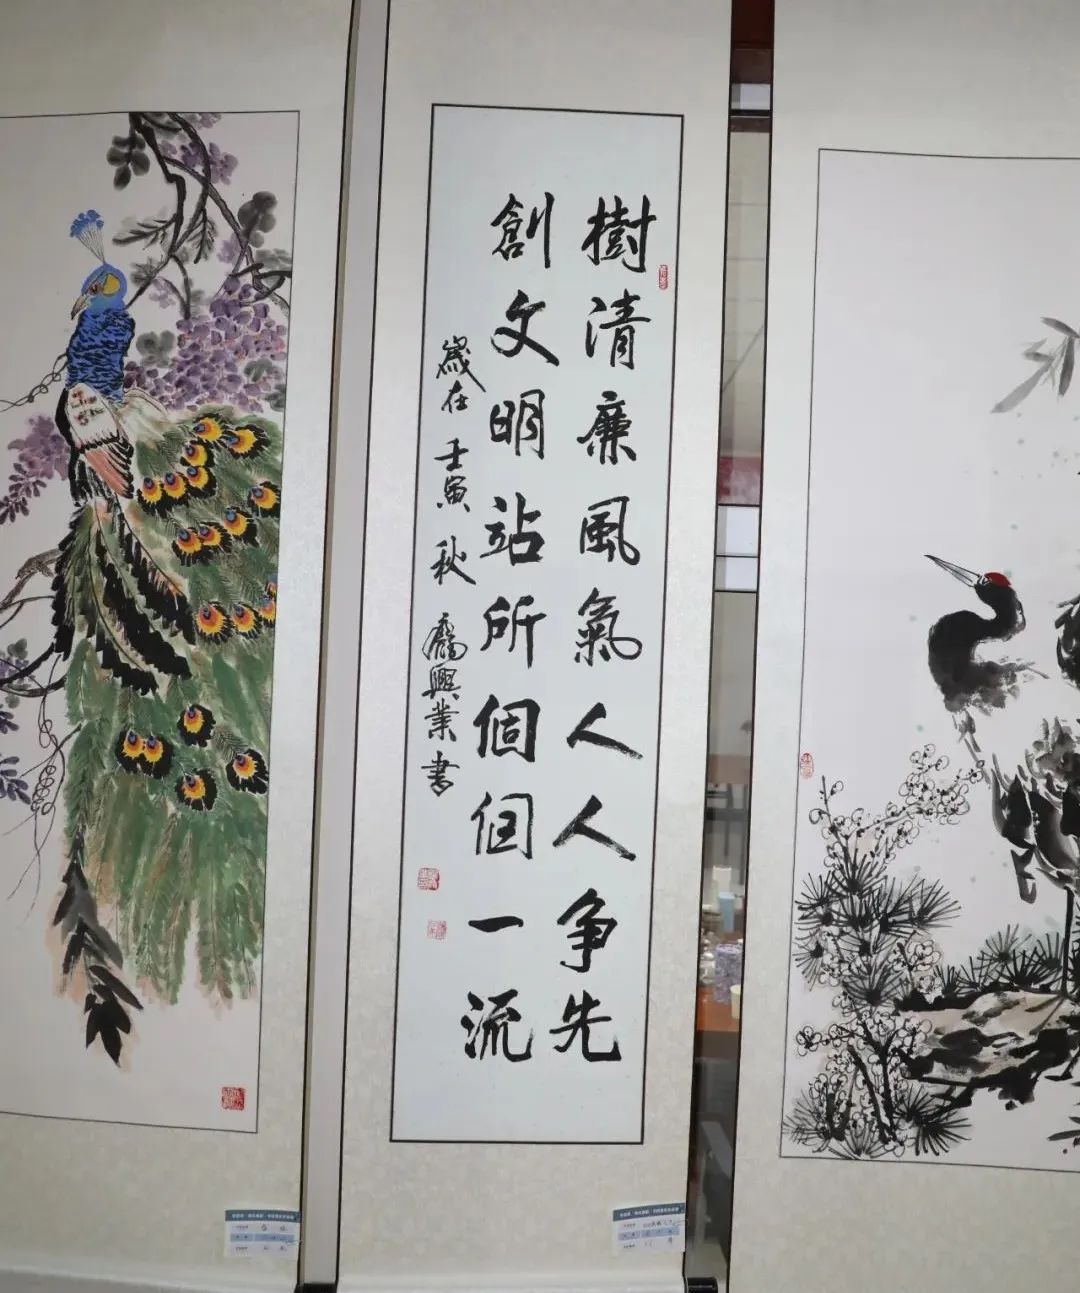 樹清廉風氣人人争先
創文明站所個個一流
歲在壬寅秋龐興業書